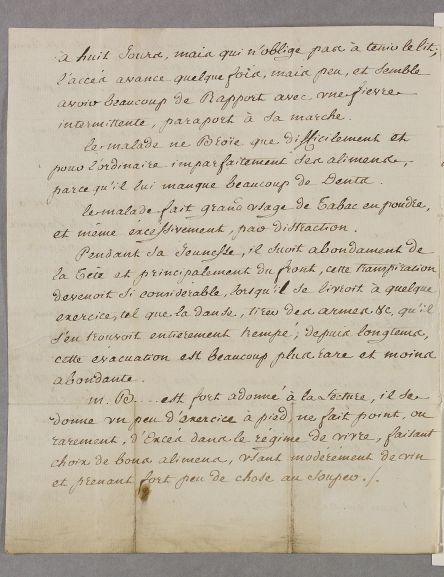 a huit Jours, mais qui n'oblige pas à tenir le lit;
l'accès avance quelque fois, mais peu, et semble
avoir beaucoup de Rapport avec une fievre
intermittente, paraport à sa marche.
le malade ne Broie que difficilement et
pour l'ordinaire imparfaitement ses alimens,
parce qu'il lui manque beaucoup de Dents.
le malade fait grand usage de Tabac en poudre,
et meme excessivement, par distraction.
Pendant sa Jeunesse, il suoit abondament de
la Tete et principalement du front, cette transpiration
devenoit si considérable, lorsqu'il se livroit à quelque
exercice, tel que la danse, tirer des armes &c, qu'il
s'en trouvoit entierement trempe; depuis longtems,
cette evacuation est beaucoup plus rare et moins
abondante.
m. B.... est fort adonné à la Lecture, il se
donne un peu d'exercice à pied, ne fait point, ou
rarement, d'Excès dans le régime de vivre, faisant
choix de bons alimens, usant moderement de vin
et prenant fort peu de chose au souper./.